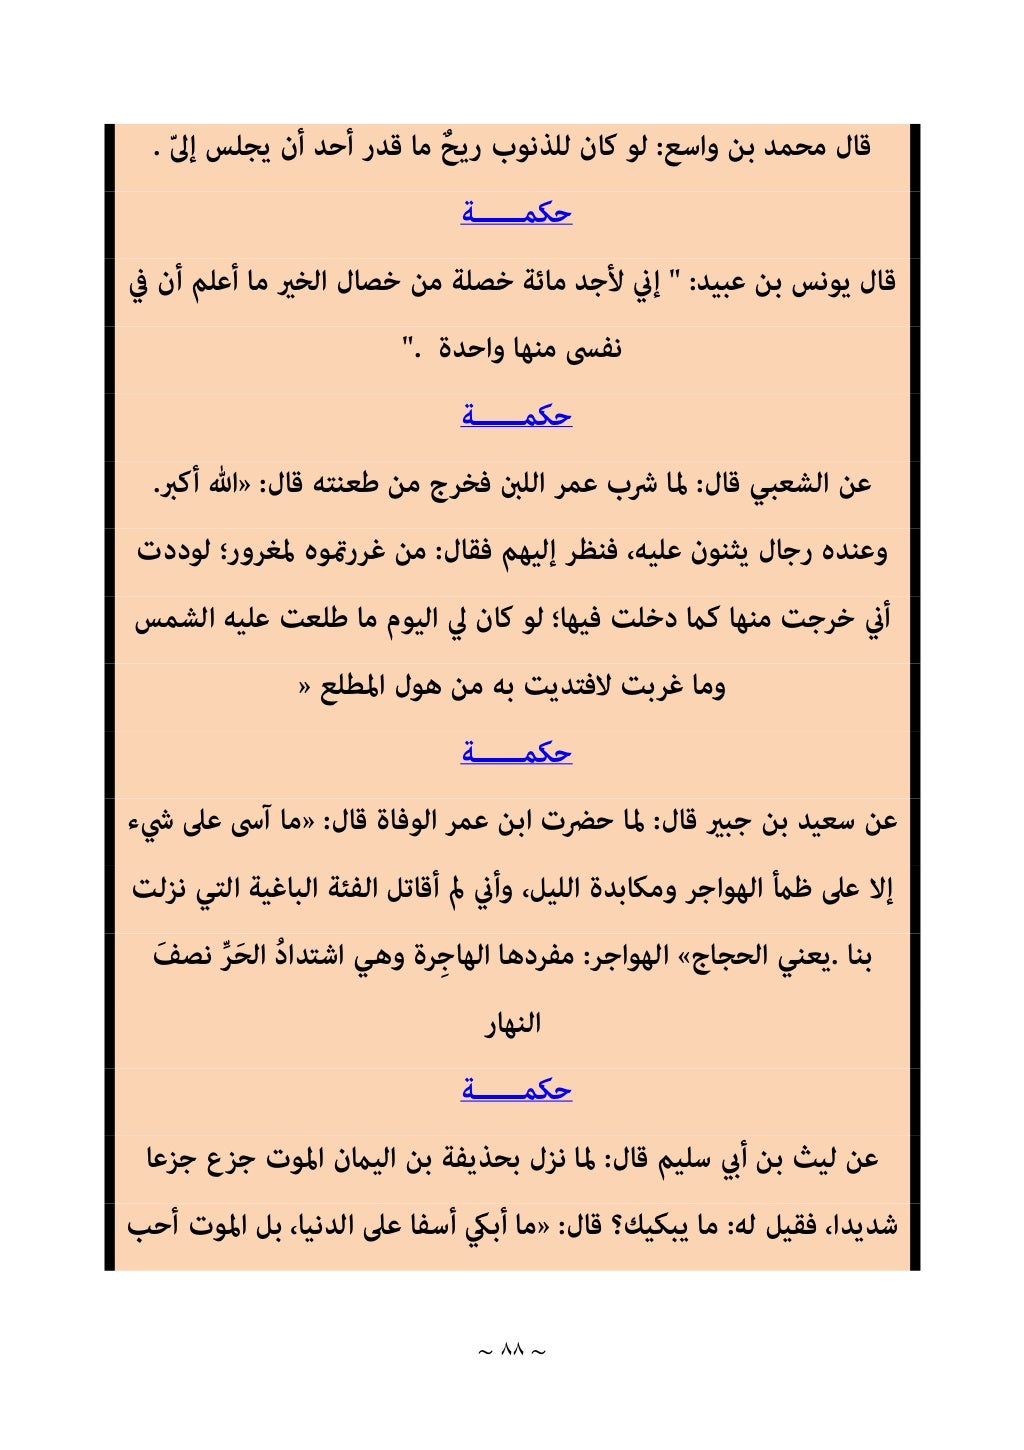 قال محمد بن واسع: لو كان للذنوب ريحٌ ما قدر أحد أن يجلس إلىّ .
حكمـــــــة
قال يونس بن عبيد: " إني لأجد مائة خصلة من خصال الخير ما أعلم أن في
نفسى منها واحدة ."
حكمـــــــة
عن الشعبي قال: لما شرب عمر اللبن فخرج من طعنته قال: «الله أكبر.
وعنده رجال يثنون عليه، فنظر إليهم فقال: من غررتموه لمغرور؛ لوددت
أني خرجت منها كما دخلت فيها؛ لو كان لي اليوم ما طلعت عليه الشمس
وما غربت لافتديت به من هول المطلع »
حكمـــــــة
عن سعيد بن جبير قال: لما حضرت ابن عمر الوفاة قال: «ما آسى على شيء
إلا على ظمأ الهواجر ومكابدة الليل، وأني لم أقاتل الفئة الباغية التي نزلت
بنا .يعني الحجاج» الهواجر: مفردها الهاجِرة وهي اشتدادُ الحَرِّ نصفَ
النهار
حكمـــــــة
عن ليث بن أبي سليم قال: لما نزل بحذيفة بن اليمان الموت جزع جزعا
شديدا، فقيل له: ما يبكيك؟ قال: «ما أبكي أسفا على الدنيا، بل الموت أحب
~ ٨٨ ~